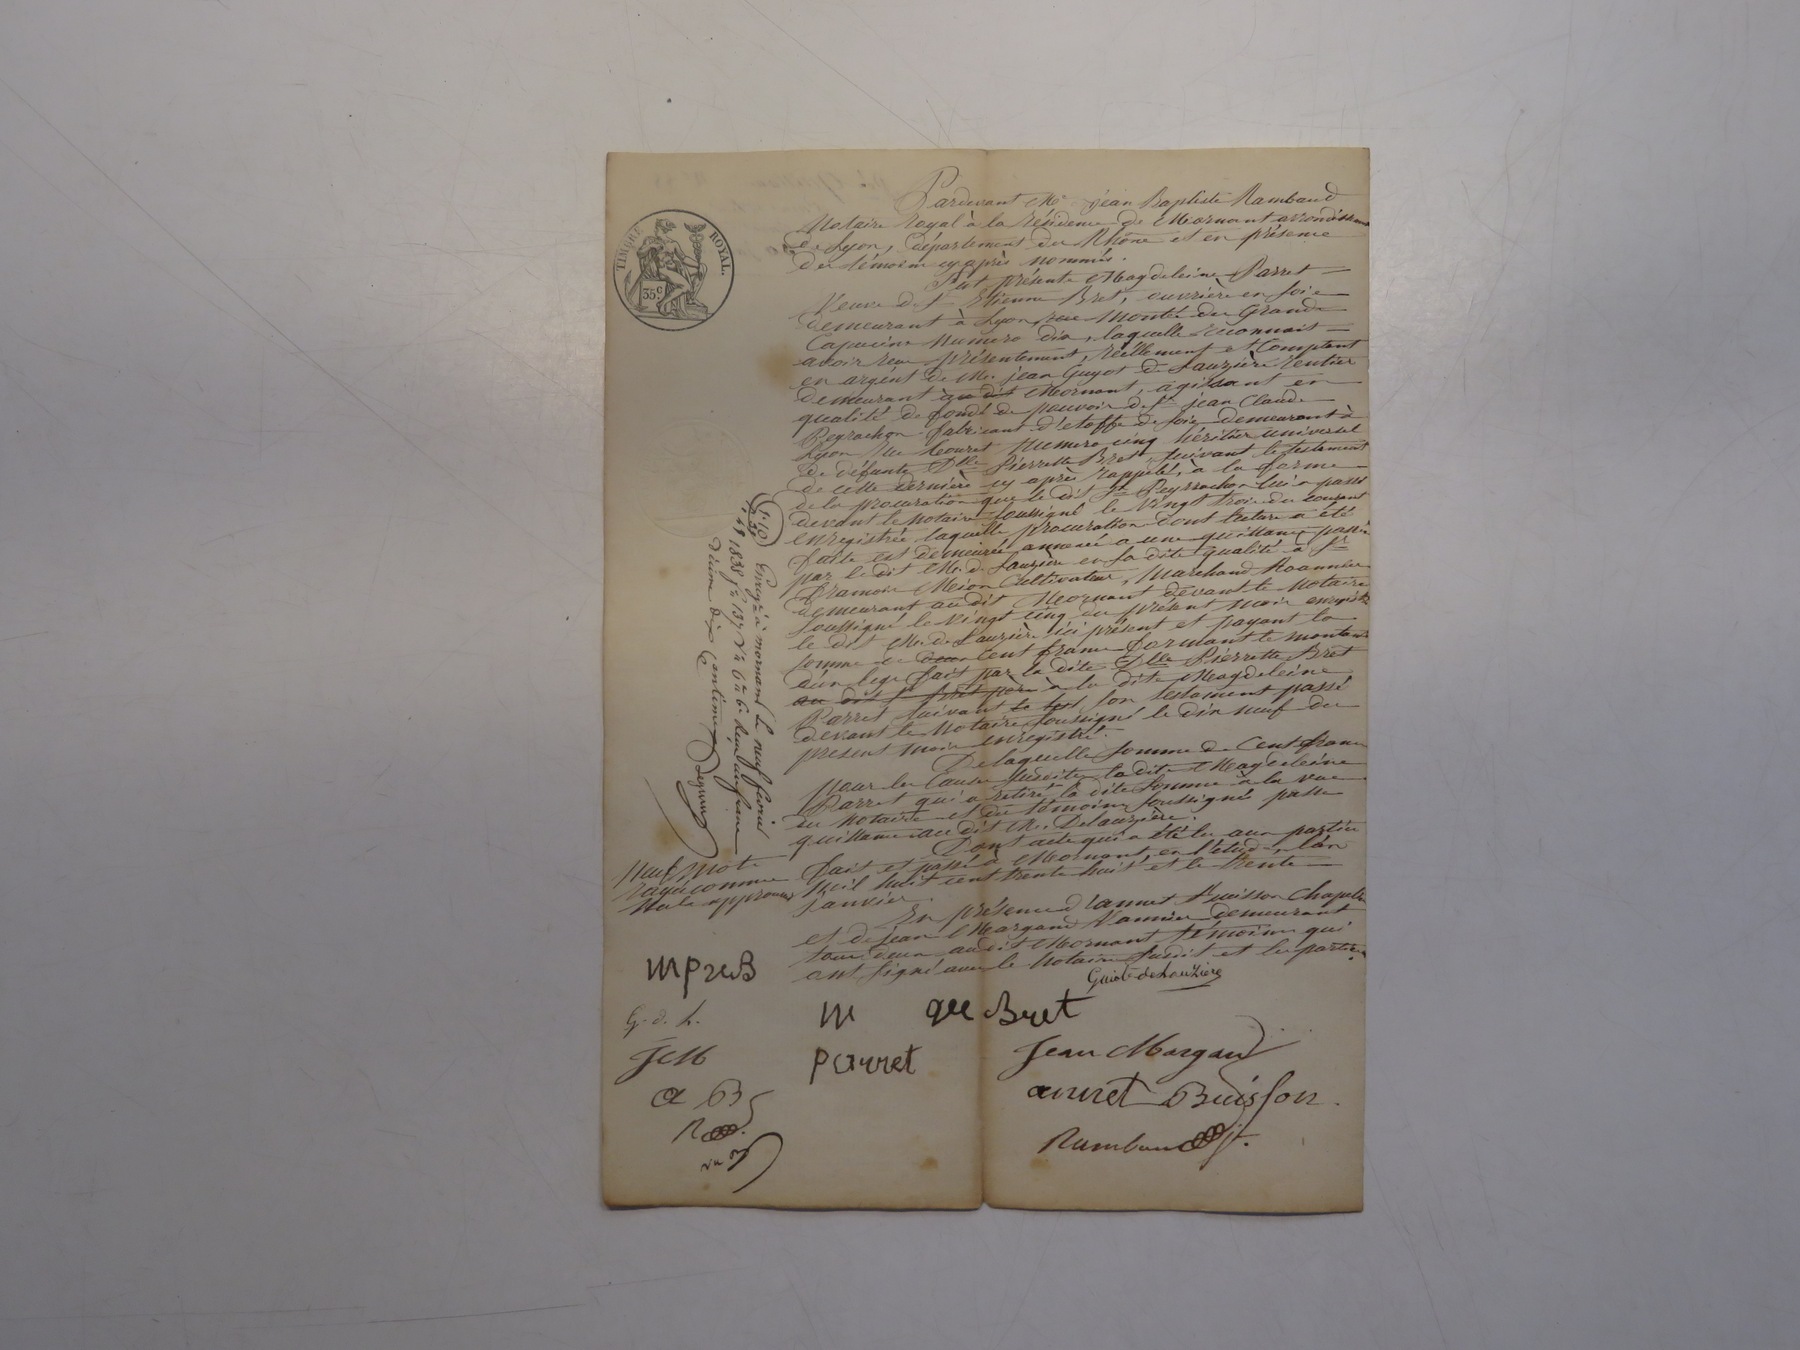 TIMBRE ROYAL.
35 c
Pardevant Me jean Baptiste Rambaud
Notaire Royal à la Résidence de Mornant arrondissem
de Lyon, département du Rhône et en présence
des témoins cy après nommés.
Fut présente Magdeleine Parret
Veuve de Sr Etienne Bret, ouvrière en soie
demeurant à Lyon, rue Montée des Grands
Capucins Numero dix, laquelle reconnait
avoir reçu présentement, réellement et Comptant
en argent de Mr. jean Guyot de Lauzière rentier
demeurant au dit Mornant, agissant en
qualité de fondé de pouvoir de Sr jean Claude
Peyrachon fabricant d'etoffe de soie demeurant à
Lyon rue Mouret Numero cinq héritier universel
de défunte Dlle Pierrette Bret, suivant le testament
de cette dernière cy après rappelé, à la forme
de la procuration que le dit Sr Peyrachon lui a passé
devant le Notaire soussigné le vingt trois du courant
enregistrée laquelle procuration dont lecture a été
faite est demeurée annexée a une quittance passée
par le dit Mr. de Lauzière en sa dite qualité à Sr
francois Meion Cultivateur, Marchand Roannier
demeurant au dit Mornant devant le Notaire
soussigné le vingt cinq du présent mois enregistré
le dit Mr. de Lauzière ici présent et payant la
somme de deux Cent francs formant le montant
d'un legs fait par la dite Dlle Pierrette Bret
au dit Sr Bret père à la dite Magdeleine
Parret suivant le tes son testament passé
devant le Notaire soussigné le dix neuf du
present mois enregistré.
De laquelle somme de Cent francs
pour les Causes susdites la dite Magdeleine
Parret qui a retiré la dite somme à la vue
du Notaire et des témoins soussignés passe
quittance au dit Mr. Delauzière.
Dont acte qui a été lu aux parties
fait et passé à Mornant en l'étude, l'an
mil huit cent trente huit et le trente
janvier.
En présence d'annet Buisson Chapelier
et de jean Margand Vannier demeurant
tous deux au dit Mornant témoins qui
ont signé avec le Notaire susdit et les parties.
fo 10
Enregé à mornant le neuf fevrier
1838 fo 137 Vo Cie 6 Reçu un franc
décime dix Centimes
Neuf mots
rayés comme
Nuls approuvés
Guiot de Lauzière
MPveB
M que Bret
G. d. L.
Parret
JM
Jean Margand
a B
annet Buisson
R
Rambaud